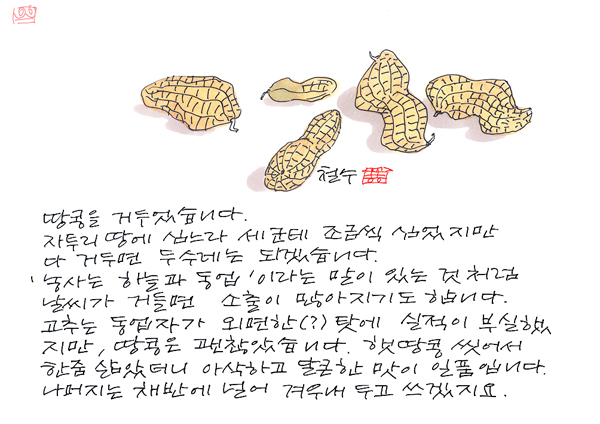 철수
땅콩을 거두었습니다.
자투리 땅에 심느라 세군데 조금씩 심었지만
다 거두면 두수레는 되겠습니다.
'농사는 하늘과 동업'이라는 말이 있는 것처럼
날씨가 거들면 소출이 많아지기도 합니다.
고추는 동업자가 외면한(?) 탓에 실적이 부실했
지만, 땅콩은 괜찮았습니다. 햇땅콩 씻어서
한줌 삶았더니 아삭하고 달큰한 맛이 일품입니다.
나머지는 채반에 널어 겨우내 두고 쓰겠지요.